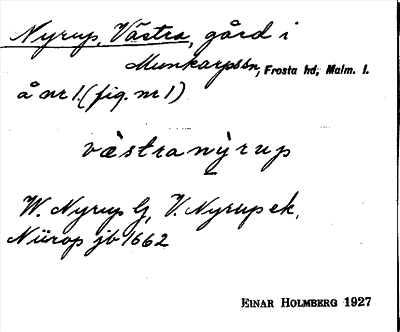 Nyrup, Västra, gård i
Munkarpssn, Frosta hd, Malm. l.
å nr 1. (fig. nr 1)
västranyrup
W. Nyrup Gg, V. Nyrup ek,
Nürop jb 1662
EINAR HOLMBERG 1927